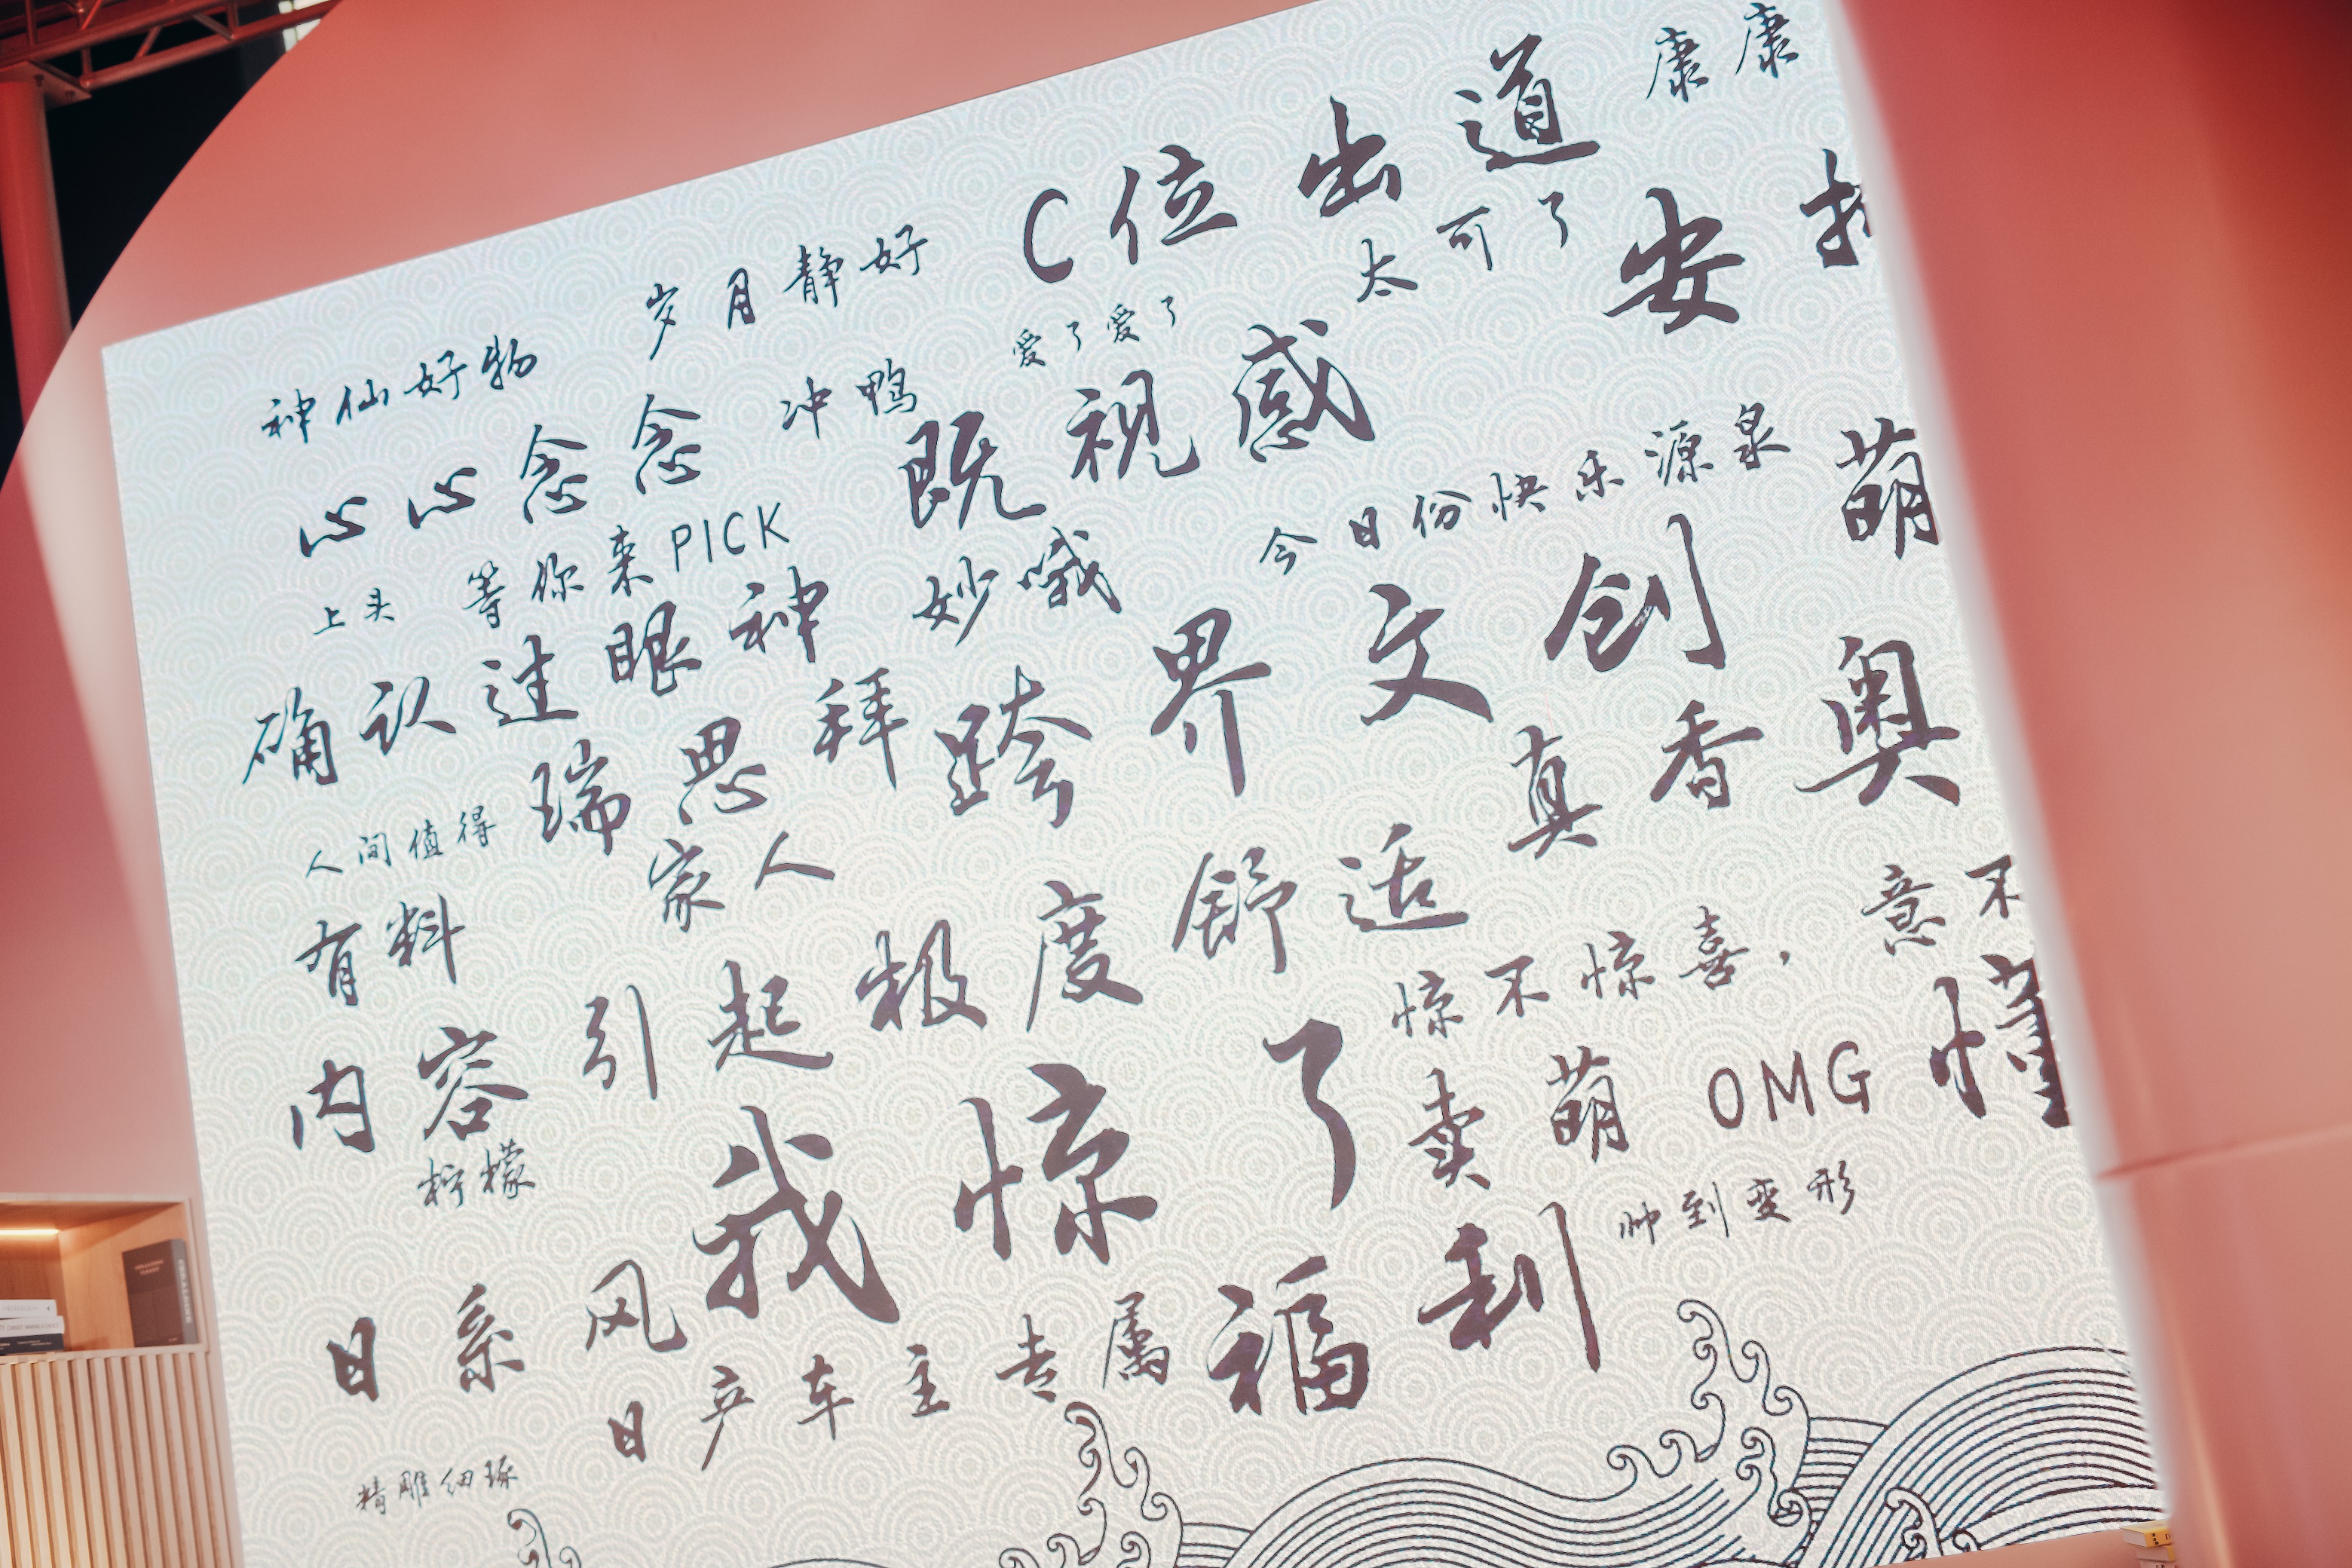 康康
C位出道
岁月静好
太可了
安
神仙好物
爱了爱了
冲鸭
心心念念
既视感
今日份快乐源泉
萌
上头
等你来PICK
妙哦
确认过眼神
跨界文创
瑞思拜
真香
奥
人间值得
家人
有料
引起极度舒适
惊不惊喜,意不
内容
我惊了
卖萌
OMG
懂
柠檬
帅到变形
日系风
福利
日产车主专属
精雕细琢